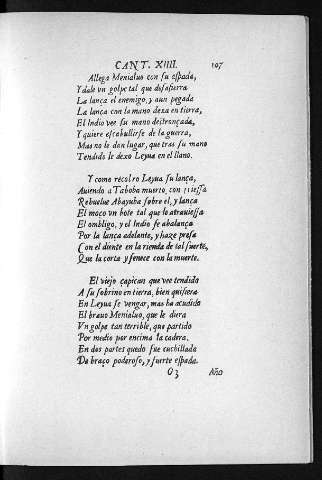 CANT. XIIII. 107
Allega Menialuo con su espada,
Y dale vn golpe tal que desafierra
La lança el enemigo, y aun pegada
La lança con la mano dexa en tierra,
El Indio vee su mano destroncada,
Y quiere escabullirse de la guerra,
Mas no le dan lugar, que tras su mano
Tendido le dexo Leyua en el llano.
Y como recobro Leyua su lança,
Auiendo a Taboba muerto, con priessa
Rebuelue Abayuba sobre el, y lança
El moço vn bote tal que lo atrauiessa
El ombligo, y el Indio se abalança
Por la lança adelante, y haze presa
Con el diente en la rienda de tal suerte,
Que la corta y fenece con la muerte.
El viejo çapican que vee tendido
A su sobrino en tierra, bien quisiera
En Leyua se vengar, mas ha acudido
El brauo Menialuo, que le diera
Vn golpe tan terrible, que partido
Por medio por encima la cadera,
En dos partes quedo fue cuchillada
De braço poderoso, y fuerte espada.
O3 Año